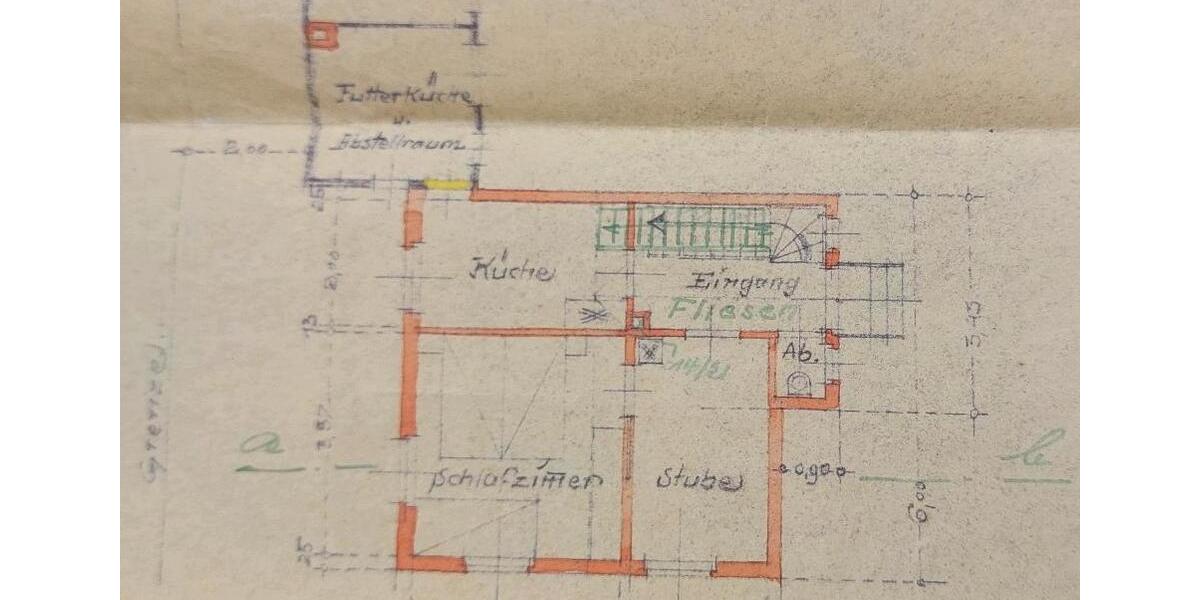 Futterküche
u.
Abstellraum
2,00
25
Küche
Eingang
Fliesen
2,10
13
Ab.
14/21
5,13
Grenze
a
b
Schlafzimmer
Stube
0,90
6,00
25